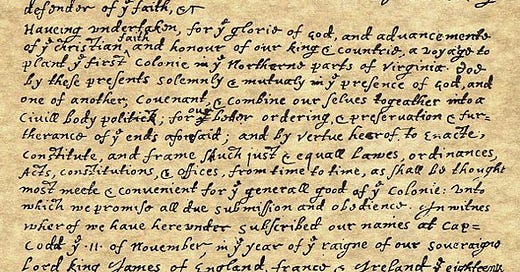 defender of yᵉ faith, &c
Haueing undertaken, for yᵉ glorie of God, and advancemente
of yᵉ christian faith and honour of our king & countrie, a voyage to
plant yᵉ first Colonie in yᵉ Northerne parts of Virginia. Doe
by these presents solemnly & mutualy in yᵉ presence of God, and
one of another, Covenant, & combine our selves togeather into a
Civill body politick; for our better ordering, & preservation & fur-
therance of yᵉ ends aforesaid; and by vertue hearof to Enacte,
constitute, and frame shuch just & equall Lawes, ordinances,
Acts, constitutions, & offices, from time to time, as shall be thought
most meete & convenient for yᵉ generall good of yᵉ Colonie: unto
which we promise all due submission and obedience. In witnes
wherof we have hereunder subscribed our names at Cap-
Codd yᵉ ·11· of November, in yᵉ year of yᵉ raigne of our soveraigne
Lord king James of England, france, & Ireland yᵉ eighteenth